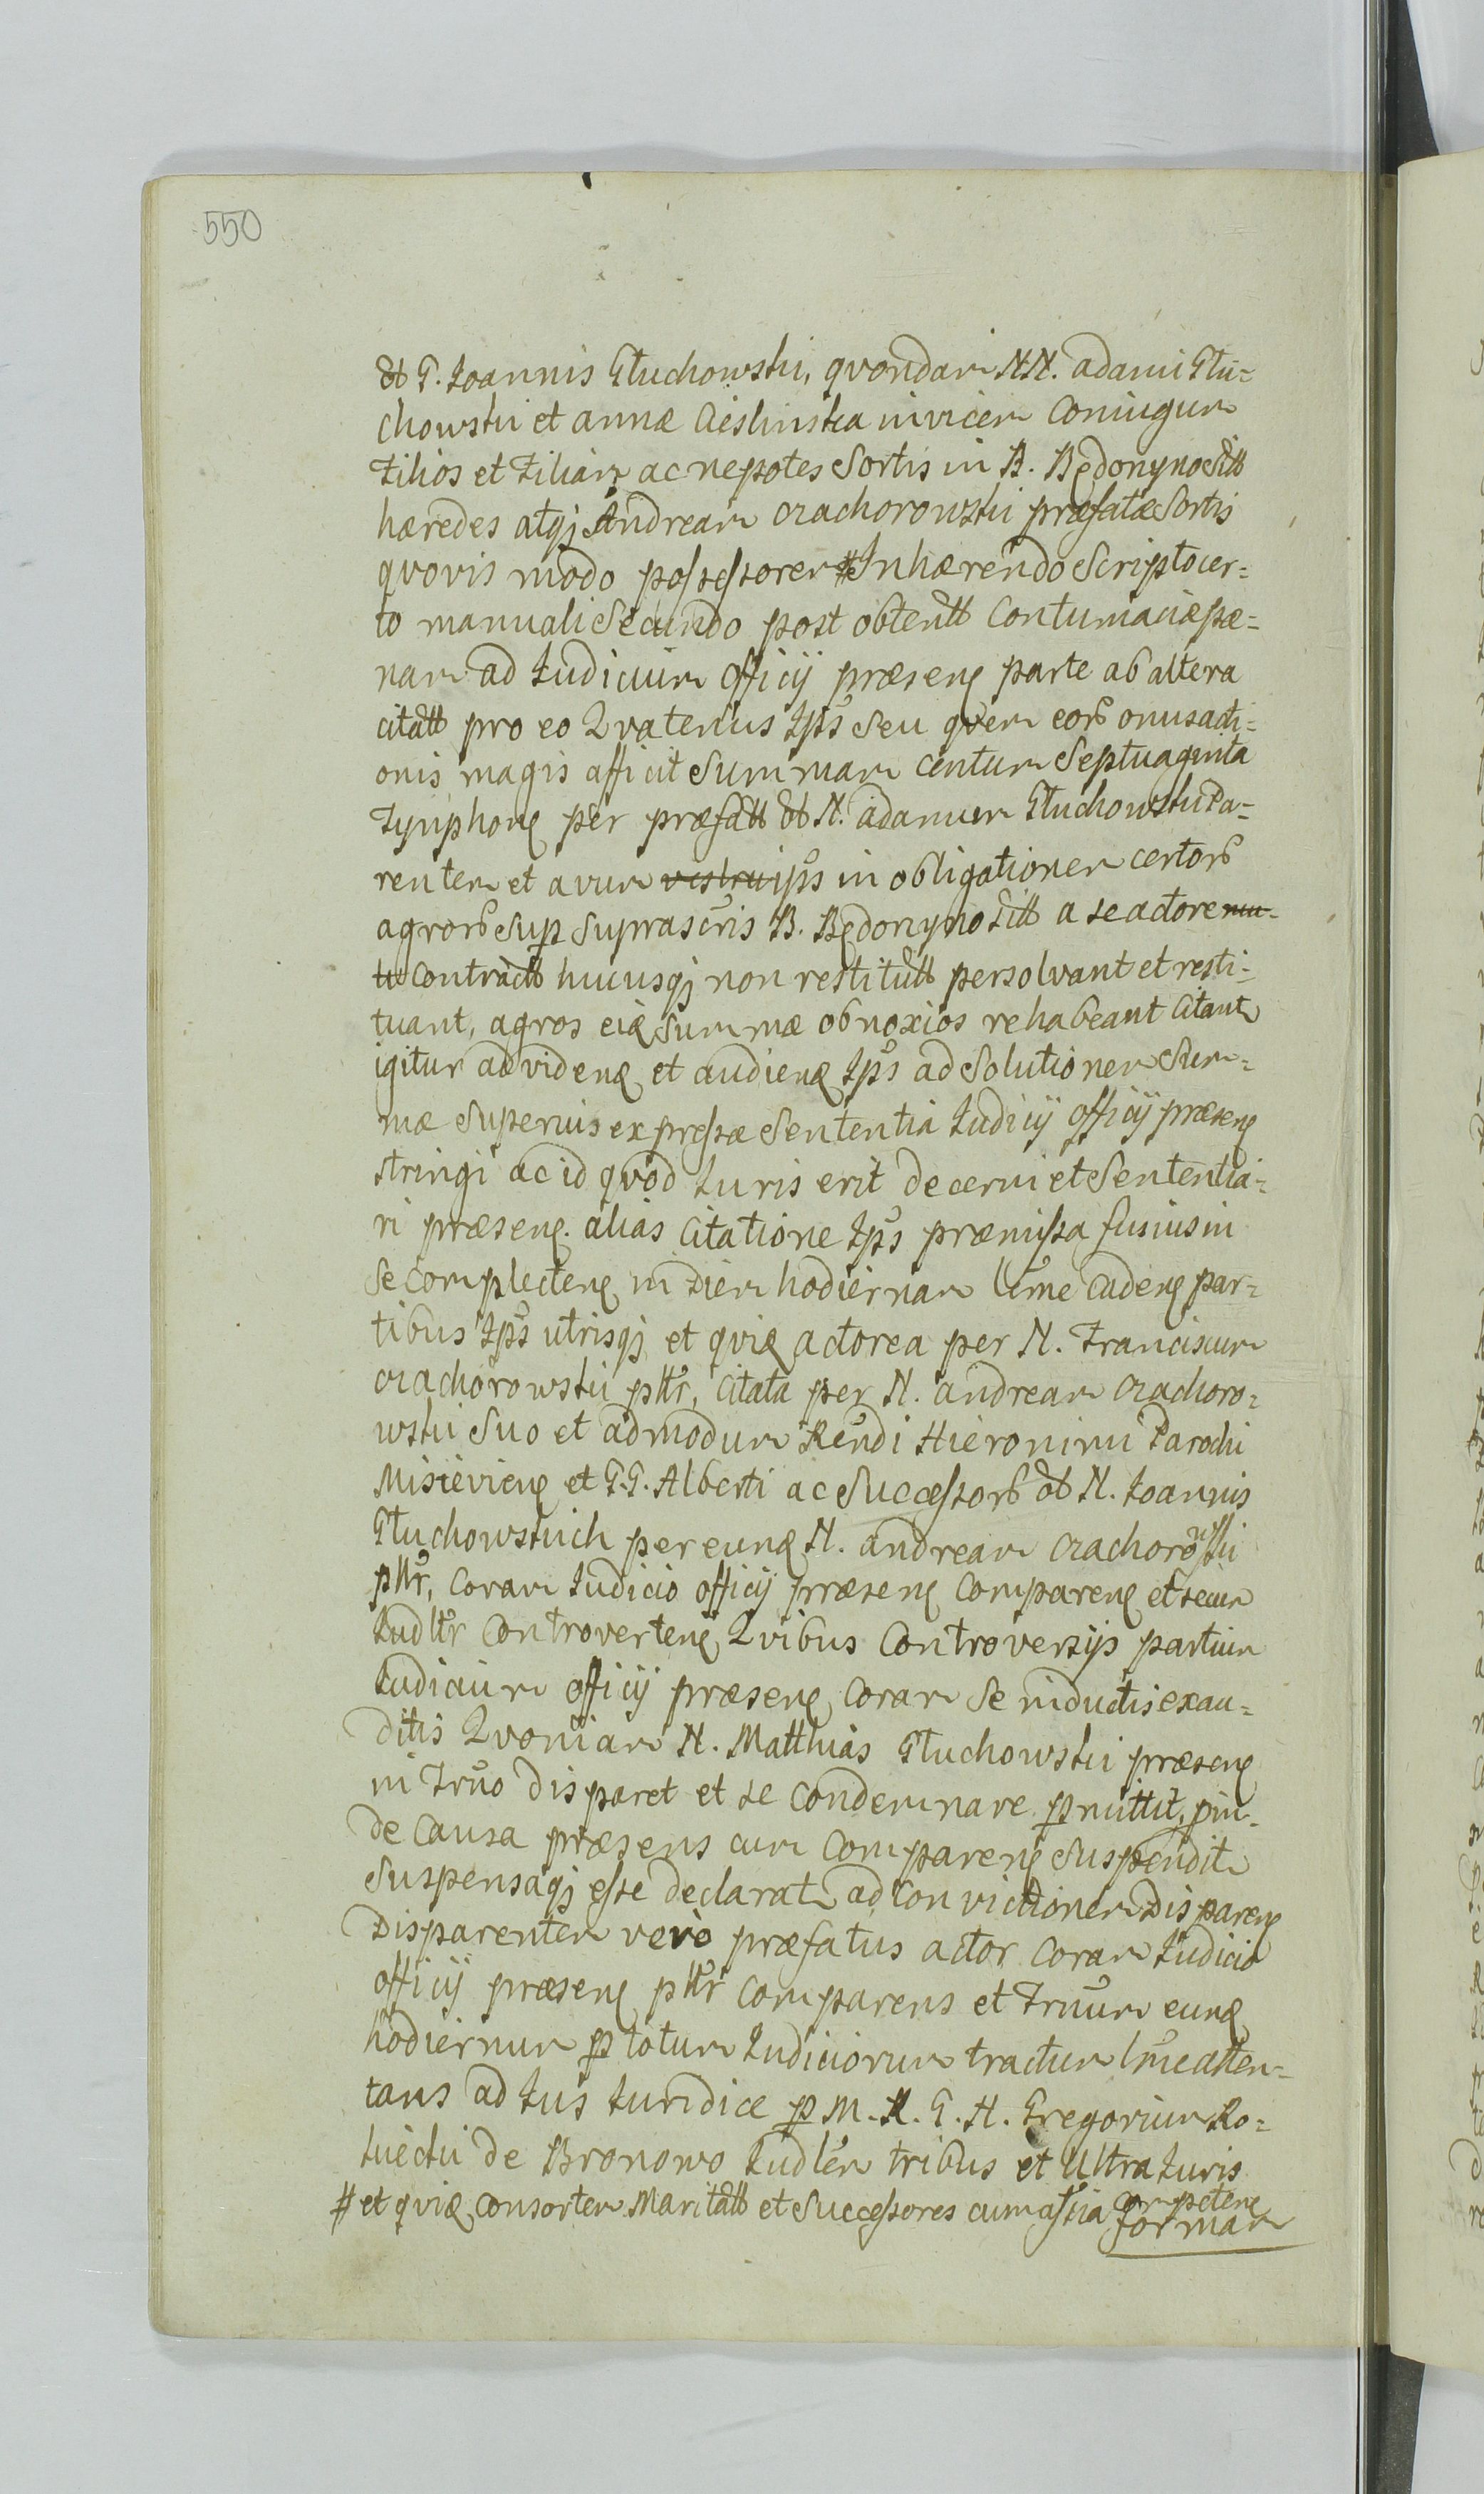 550
olb G. Joannis Głuchowski, qvondam NN. adami Głu=
chowski et annæ Cieslinska invicem Coniugum
Filios et Filiam ac nepotes Sortis in B. Będonyno Sitt
hæredes atqꝫ Andream Czachorowski præfatæ Sortis
qvovis modo possessorem # Inhærendo Scripto cer=
to manuali Secundo post obtentt Contumaciæ pæ=
nam ad Judicium Officij præsenꝭ parte ab altera
citatt pro eo Qvatenus Ips̃ Seu qvem eorũ onus acti=
onis magis afficit Summam Centum Septuaginta
Tynphonꝭ per præfatt olb N. adamum Głuchowski Pa=
rentem et avum vestrum ips̃ in obligationem certorũ
agrorũ Sup Suprascr̃is B. Będonyno Sitt a se actore mu-
tuo Contractt hucusqꝫ non restitutt persolvant et resti=
tuant, agros eiꝗ Summæ obnoxios rehabeant Citantr
igitur ad videnꝗ et audienꝗ Ips̃ ad Solutionem Sum=
mæ Superius expressæ Sententia Judicij Officij præsenꝭ
stringi ac id qvod Juris erit decerni et Sententia=
ri præsenꝭ. alias Citatione Ips̃ præmissa fusius in
Se Complectenꝭ in Diem hodiernam ltme Cadenꝭ par=
tibus Ips̃ utrisqꝫ et qviꝗ actorea per N. Franciscum
Czachorowski plr̃, Citata per N. andream Czachoro=
wski Suo et admodum Rendi Hieronimi Parochi
Misieviensꝭ et G.G. Alberti ac Successorũ olb N. Joannis
Głuchowskich per eunꝗ N. andream Czachorowski
plr̃, Coram Judicio Officij præsenꝭ Comparenꝭ et secum
Judltr Controvertenꝭ Qvibus Controversijs partium
Judicium Officij præsenꝭ Coram Se inductis exau=
ditis Qvoniam N. Matthias Głuchowski præsenꝭ
in Tr̃no disparet et se Condemnare p̱mittit, pin-
de Causa præsens cum Comparenꝭ Suspenditr
Suspensaqꝫ esse declaratr ad Convictionem Disparenꝭ
Disparentem vero præfatus actor Coram Judicio
Officij præsenꝭ plr̃ Comparens et Tr̃num eunꝗ
hodiernum p̱ totum Judiciorum tractum ltme atten=
tans ad Jus Juridice p̱ M. R. G. N. Gregorium Ro=
kiecki de Bronowo Judlem tribus et Ultra Juris
# et qviꝗ Consortem Maritatt et Successores cum assia Competenꝭ
formam